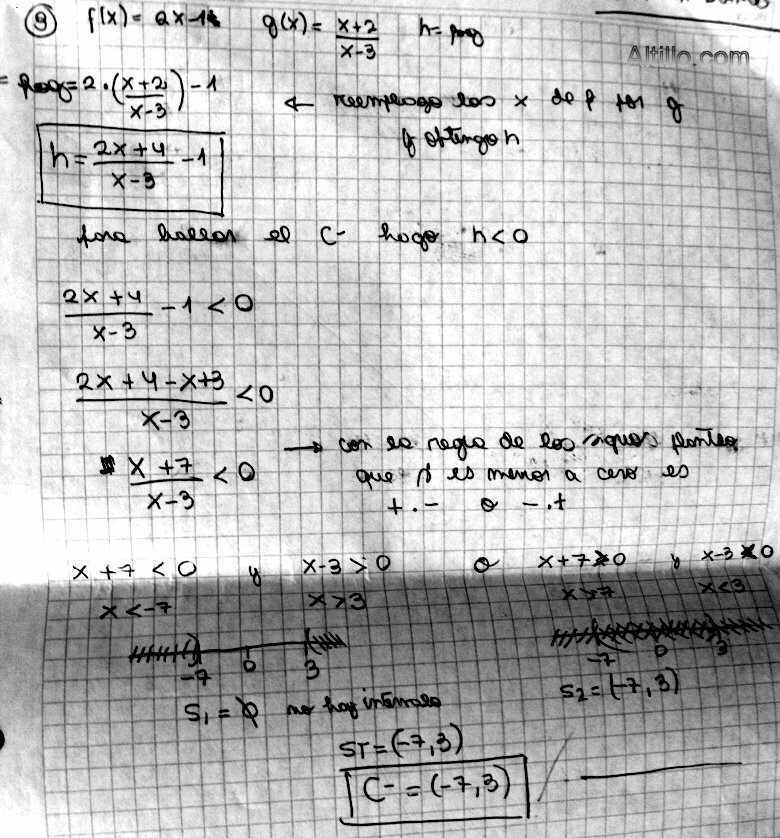 9 f(x) = 2x-1 g(x) = x+2 / x-3 h = fog
Altillo.com
= fog = 2 . (x+2 / x-3) - 1 ← reemplazo las x de f por g
y obtengo h
h = 2x+4 / x-3 - 1
para hallar el C- hago h<0
2x+4 / x-3 - 1 < 0
2x+4-x+3 / x-3 < 0
x+7 / x-3 < 0 → con la regla de los signos planteo
que si es menor a cero es
+.- o -.+
x+7 < 0 y x-3 > 0 o x+7 > 0 y x-3 < 0
x < -7 x > 3 x > 7 x < 3
-7 0 3 -7 0 3
S1 = ϕ no hay intervalo S2 = (-7, 3)
ST = (-7, 3)
C- = (-7, 3)